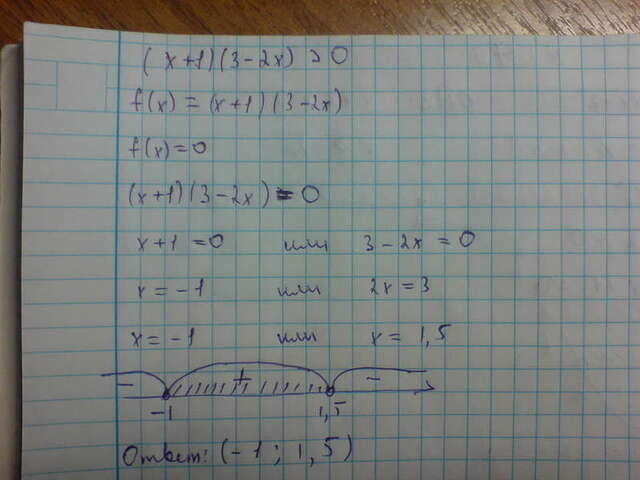 (x+1)(3-2x) > 0
f(x) = (x+1)(3-2x)
f(x)=0
(x+1)(3-2x) = 0
x+1=0 или 3-2x=0
x=-1 или 2x=3
x=-1 или x=1,5
- + -
-1 1,5
Ответ: (-1; 1,5)